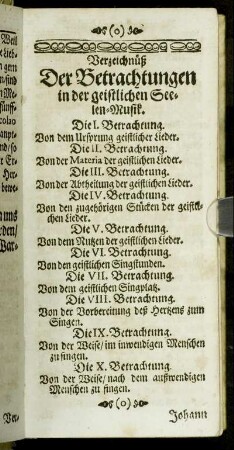 (o)
Verzeichnüß
Der Betrachtungen
in der geistlichen See-
len-Musik.
Die I. Betrachtung.
Von dem Ursprung geistlicher Lieder.
Die II. Betrachtung.
Von der Materia der geistlichen Lieder.
Die III. Betrachtung.
Von der Abtheilung der geistlichen Lieder.
Die IV. Betrachtung.
Von den zugehörigen Stücken der geistli-
chen Lieder.
Die V. Betrachtung.
Von dem Nutzen der geistlichen Lieder.
Die VI. Betrachtung.
Von den geistlichen Singstunden.
Die VII. Betrachtung.
Von dem geistlichen Singplatz.
Die VIII. Betrachtung.
Von der Vorbereitung deß Hertzens zum
Singen.
Die IX. Betrachtung.
Von der Weise/ im inwendigen Menschen
zu singen.
Die X. Betrachtung.
Von der Weise/ nach dem außwendigen
Menschen zu singen.
(o)
Johann